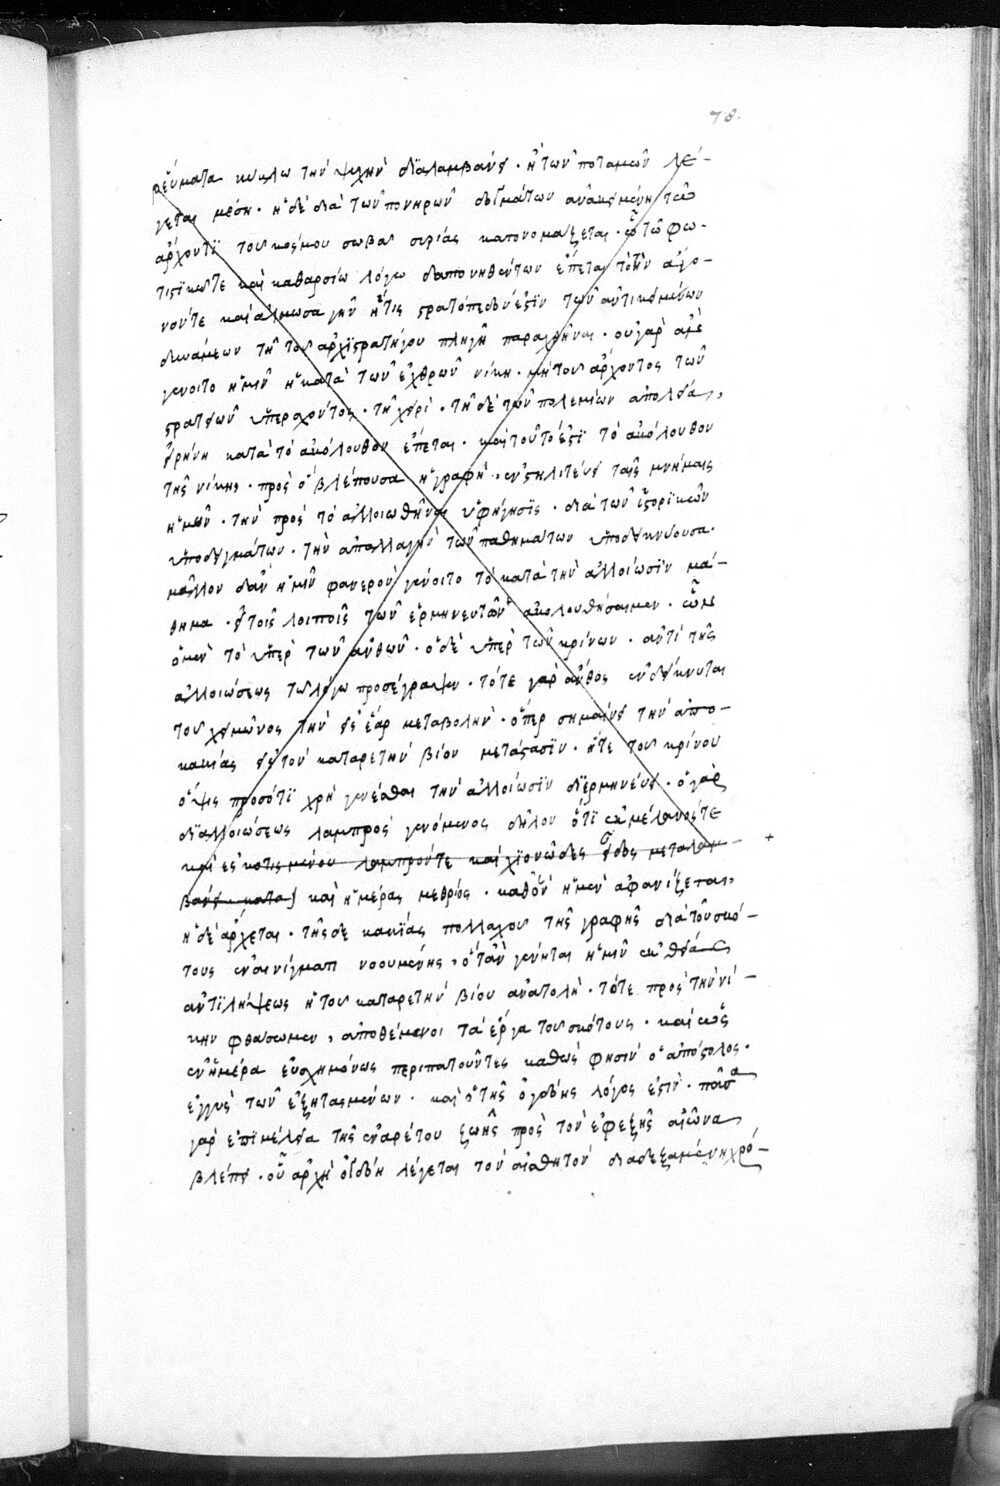 78.
ρεύματα κύκλω τὴν ψυχὴν διαλαμβάνει · ἡ τῶν ποταμῶν λέ-
γεται μέση · ἡ δὲ διὰ τῶν πονηρῶν δογμάτων ἀνακειμένη τῶ
ἄρχοντι τοῦ κόσμου σωβὰ συρίας κατονομάζεται · ὧ τῶ φω-
τιστικῶ τε καὶ καθαρσίω λόγω δαπονηθέντων ἕπεται τὸ τὴν ἄγο-
νόν τε καὶ ἁλμῶσαν γῆν ἥτις στρατόπεδόν ἐστιν τῶν ἀντικειμένων
δυνάμεων τῆ τοῦ ἀρχιστρατήγου πληγῆ παραχθῆναι · οὐ γὰρ ἂν
γένοιτο ἡμῖν ἡ κατὰ τῶν ἐχθρῶν νίκη · μὴ τοῦ ἄρχοντος τῶν
στρατειῶν ὑπερσχόντος · τῆ χειρὶ · τῆ δὲ τῶν πολεμίων ἀπολεία,
εἰρήνη κατὰ τὸ ἀκόλουθον ἕπεται · καὶ τοῦτό ἐστι τὸ ἀκόλουθον
τῆς νίκης · πρὸς ὃ βλέπουσα ἡ γραφὴ · ἐνστηλιτεύει ταῖς μνήμαις
ἡμῶν · τὴν πρὸς τὸ ἀλλοιωθῆναι ὑφήγησις · διὰ τῶν ἱστορικῶν
ὑποδειγμάτων · τὴν ἀπαλλαγὴν τῶν παθημάτων ὑποδεικνύουσα ·
μᾶλλον δ' ἂν ἡμῖν φανερὸν γένοιτο τὸ κατὰ τὴν ἀλλοίωσιν μά-
θημα · εἰ τοῖς λοιποῖς τῶν ἑρμηνευτῶν ἀκολουθήσαιμεν · ὧν
ὁ μὲν τὸ ὑπὲρ τῶν ἀνθῶν · ὁ δὲ ὑπὲρ τῶν κρίνων · ἀντὶ τῆς
ἀλλοιώσεως τῶ λόγω προσέγραψεν · τό τε γὰρ ἄνθος ἐνδείκνυται
τοῦ χειμῶνος τὴν εἰς ἔαρ μεταβολὴν · ὅπερ σημαίνει τὴν ἀπὸ
κακίας εἰς τὸν κατ' ἀρετὴν βίον μετάστασιν · ἥ τε τοῦ κρίνου
ὄψις πρὸς ὅ τι χρὴ γενέσθαι τὴν ἀλλοίωσιν διερμηνεύει · ὁ γὰρ
δι' ἀλλοιώσεως λαμπρὸς γενόμενος δῆλον ὅτι ἐκ μέλανός τε
+
καὶ ἡμέρας μεθρίος · καθ' ὃν ἡ μὲν ἀφανίζεται,
ἡ δὲ ἄρχεται · τῆς δὲ κακίας πολλαχοῦ τῆς γραφῆς διὰ τοῦ σκό-
τους ἐν αἰνίγματι νοουμένης, ὅταν γένηται ἡμῖν ἐκ θείας
ἀντιλήψεως ἡ τοῦ κατ' ἀρετὴν βίου ἀνατολὴ · τότε πρὸς τὴν νί-
κην φθάσωμεν, ἀποθέμενοι τὰ ἔργα τοῦ σκότους · καὶ ὡς
ἐν ἡμέρα εὐσχημόνως περιπατοῦντες καθὼς φησὶν ὁ ἀπόστολος ·
ἐγγὺς τῶν ἐξητασμένων · καὶ ὁ τῆς ὀγδόης λόγος ἐστὶν · πᾶσα
γὰρ ἐπιμέλεια τῆς ἐναρέτου ζωῆς πρὸς τὸν ἐφεξῆς αἰῶνα
βλέπει · οὗ ἀρχὴ ὀγδόη λέγεται τὸν αἰσθητὸν διαδεξαμένη χρό-